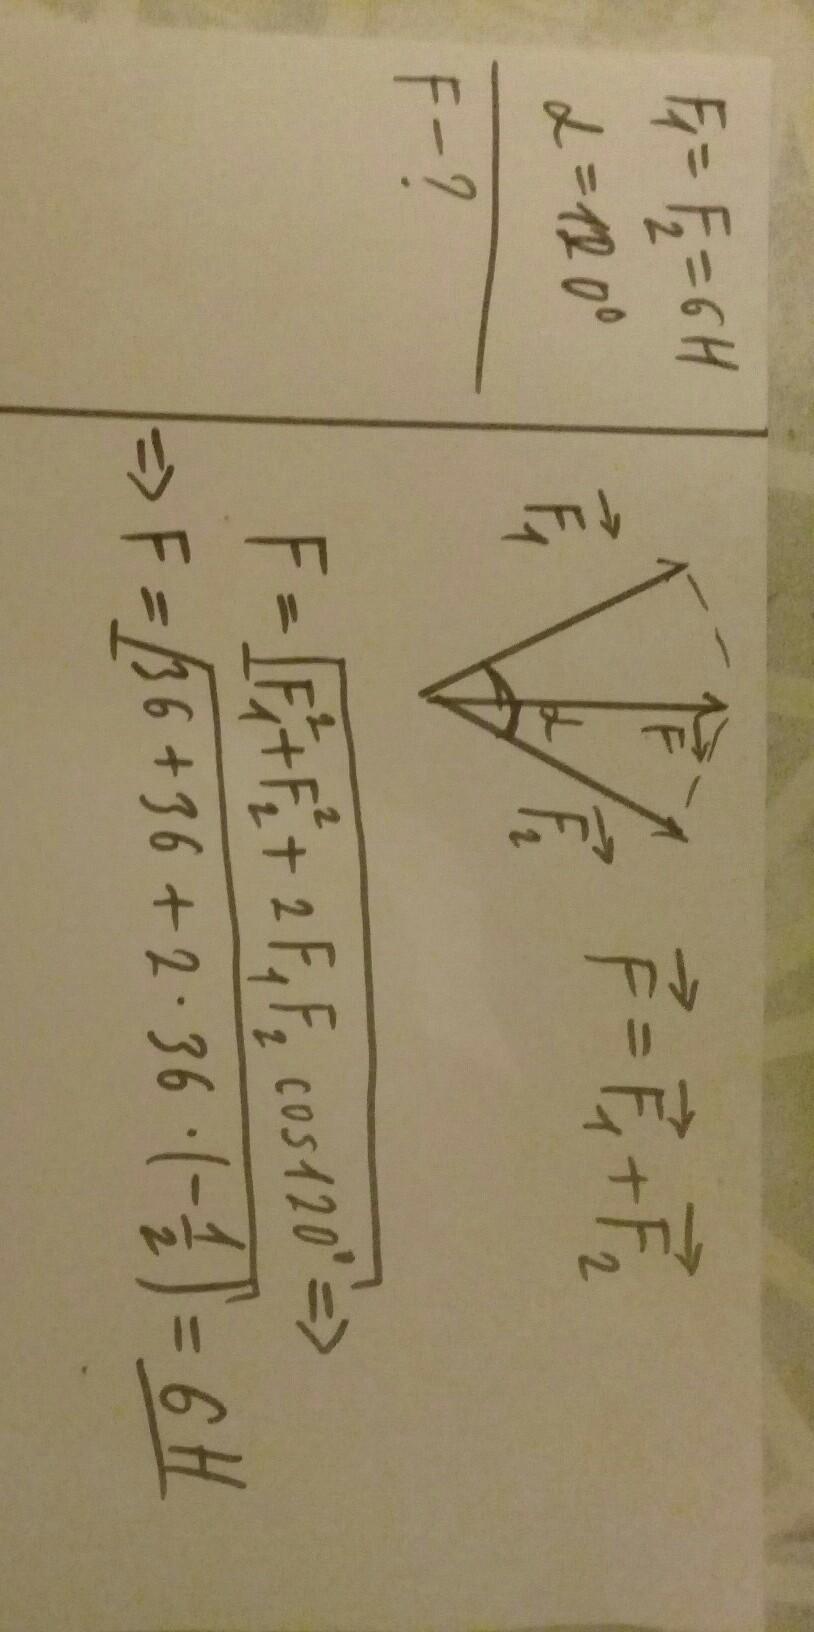 F₁ = F₂ = 6Н
α = 120°
F – ?
F⃗₁
α
F⃗
F⃗₂
F⃗ = F⃗₁ + F⃗₂
F = √(F₁² + F₂² + 2F₁F₂ cos120°) ⇒
⇒ F = √(36 + 36 + 2 · 36 · (-1/2)) = 6Н